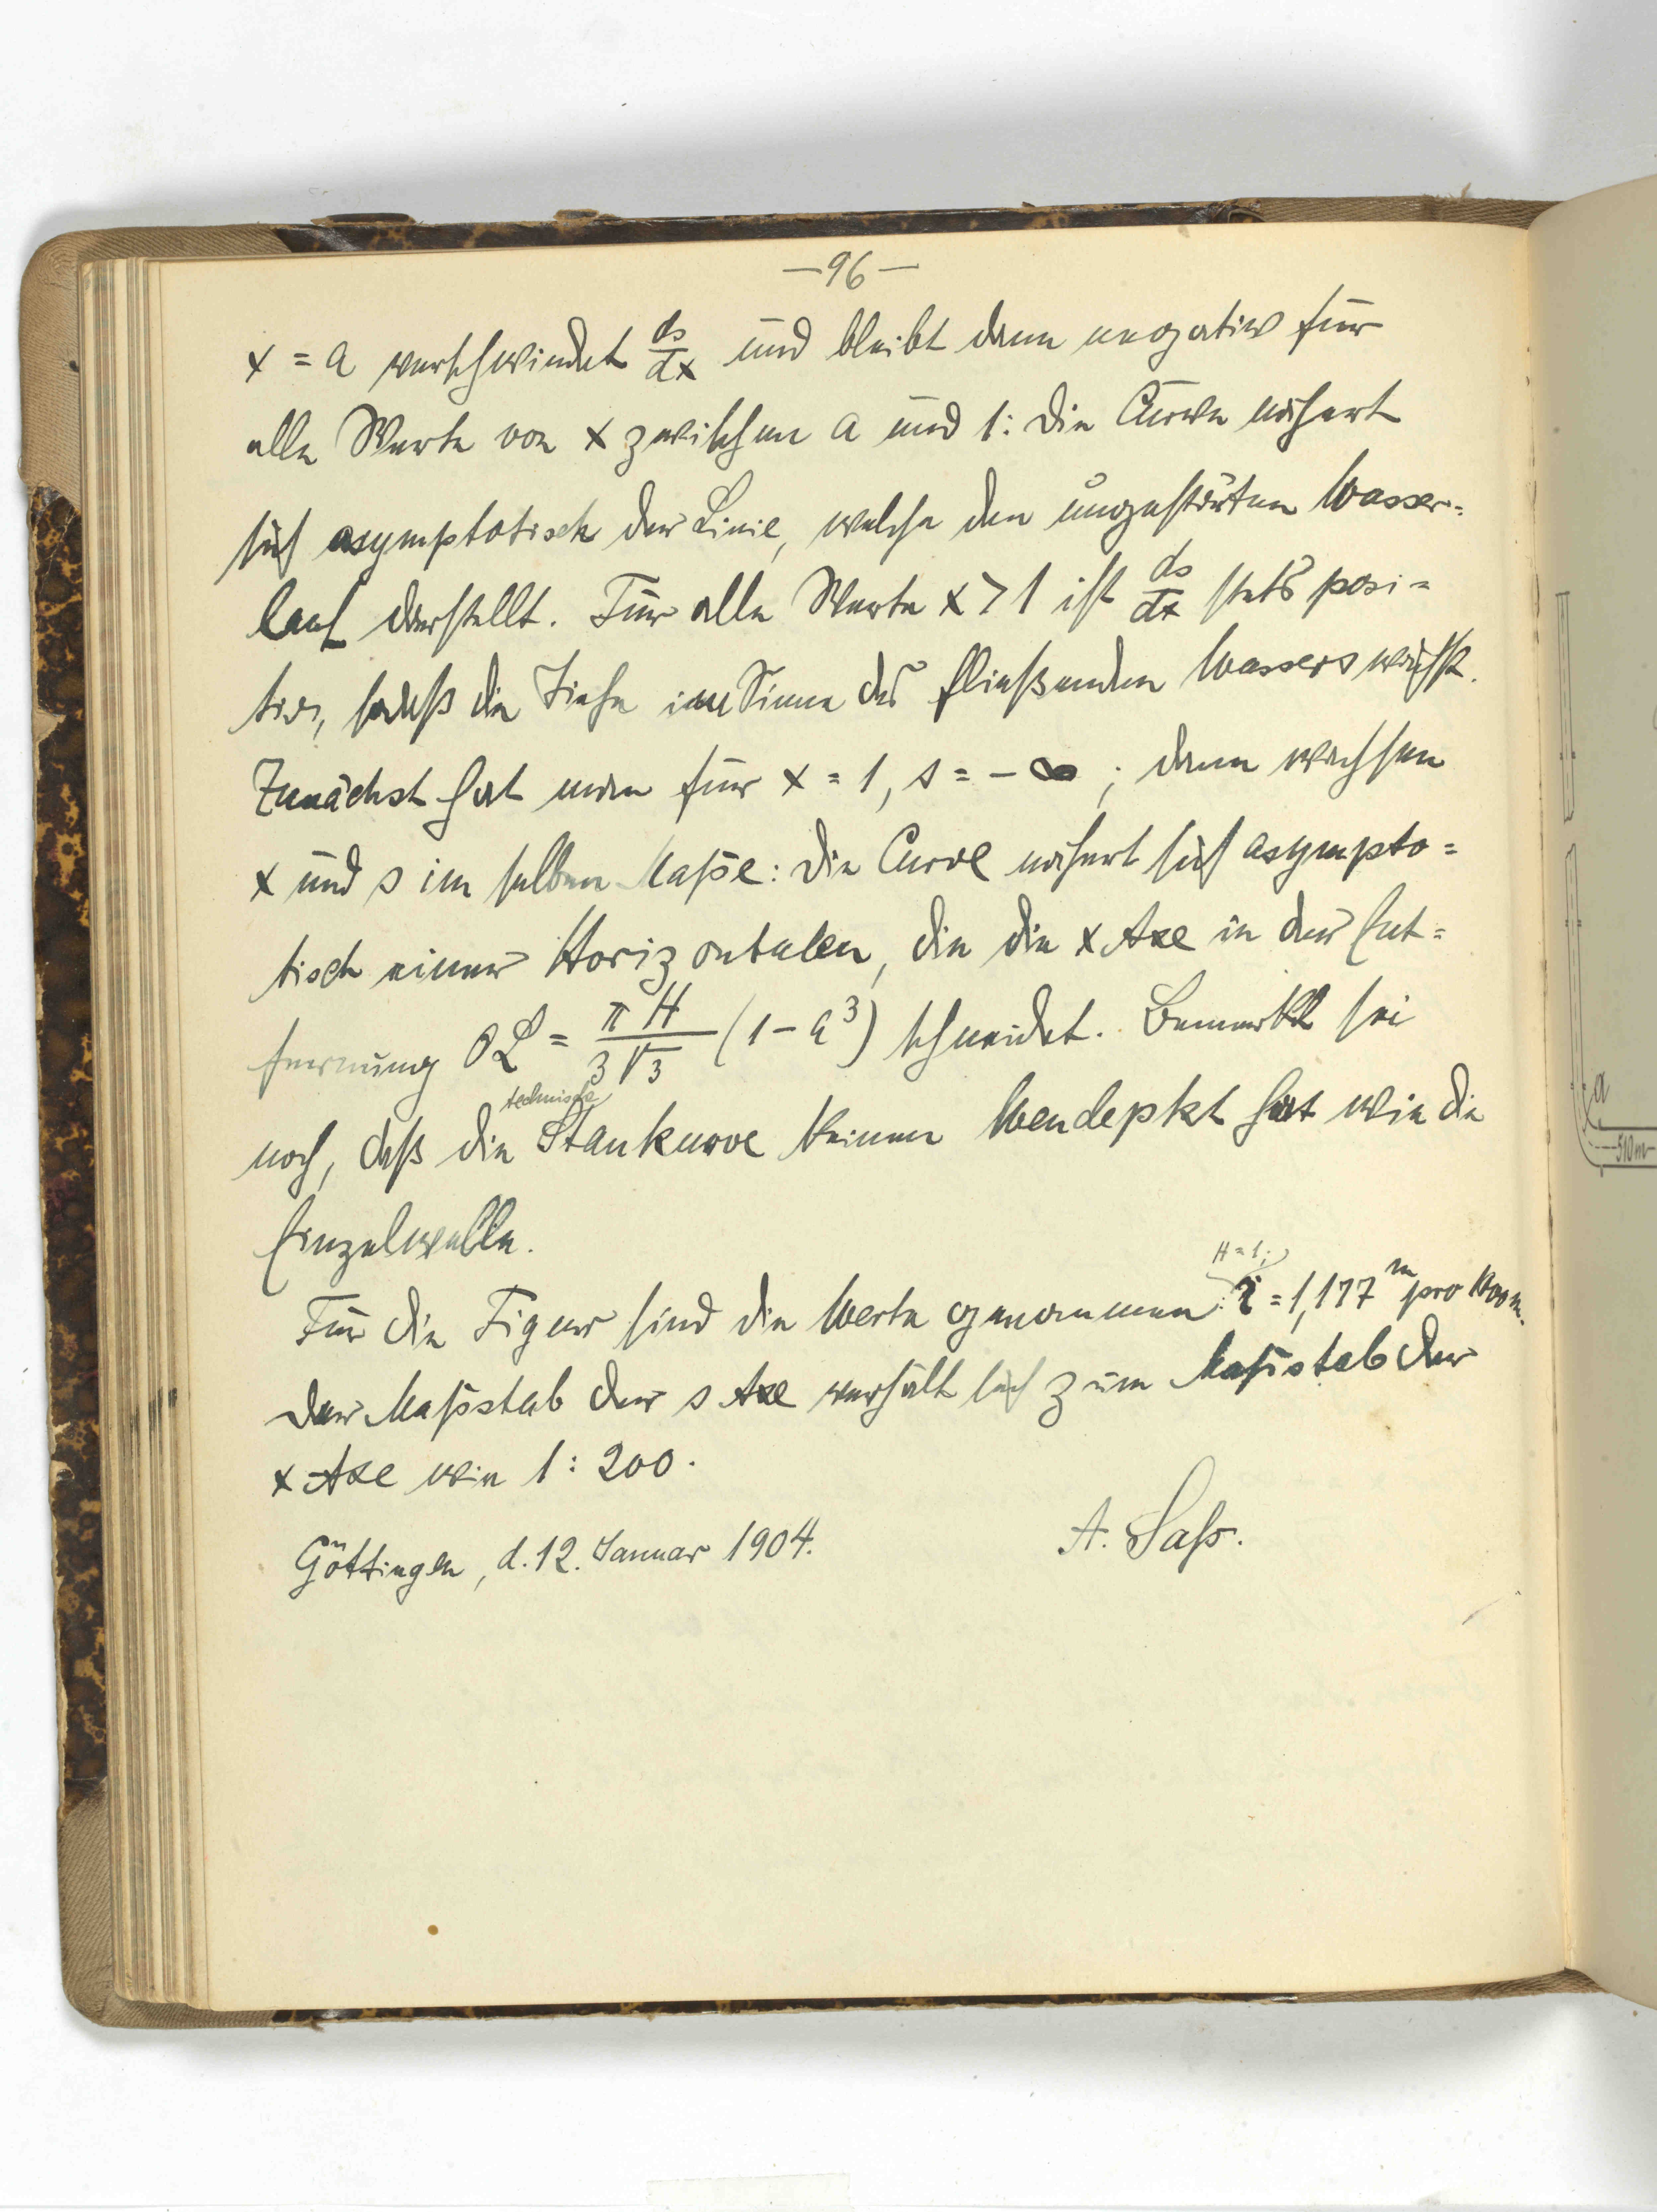 —96—
x = a verschwindet ds/dx und bleibt dann negativ für
alle Werte von x zwischen a und 1: die Curve nähert
sich asymptotisch der Linie, welche den ungestörten Wasser=
lauf darstellt. Für alle Werte x > 1 ist ds/dx stets posi=
tiv, sodaß die Tiefe im Sinne des fließenden Wassers wächst.
Zunächst hat man für x = 1, s = -∞; dann wachsen
x und s im selben Maße: die Curve nähert sich asympto=
tisch einer Horizontalen, die die x Axe in der Ent=
fernung OL = πH/3√3 (1-a³) schneidet. Bemerkt sei
technische
noch, daß die Staukurve keinen Wendepkt hat wie die
Einzelwelle.
H = 1;
Für die Figur sind die Werte genommen: i = 1,177 m pro 1000 m.
Der Maßstab der s Axe verhält sich zum Maßstab der
x Axe wie 1:200.
Göttingen, d. 12. Januar 1904.
A. Saß.
a
510m